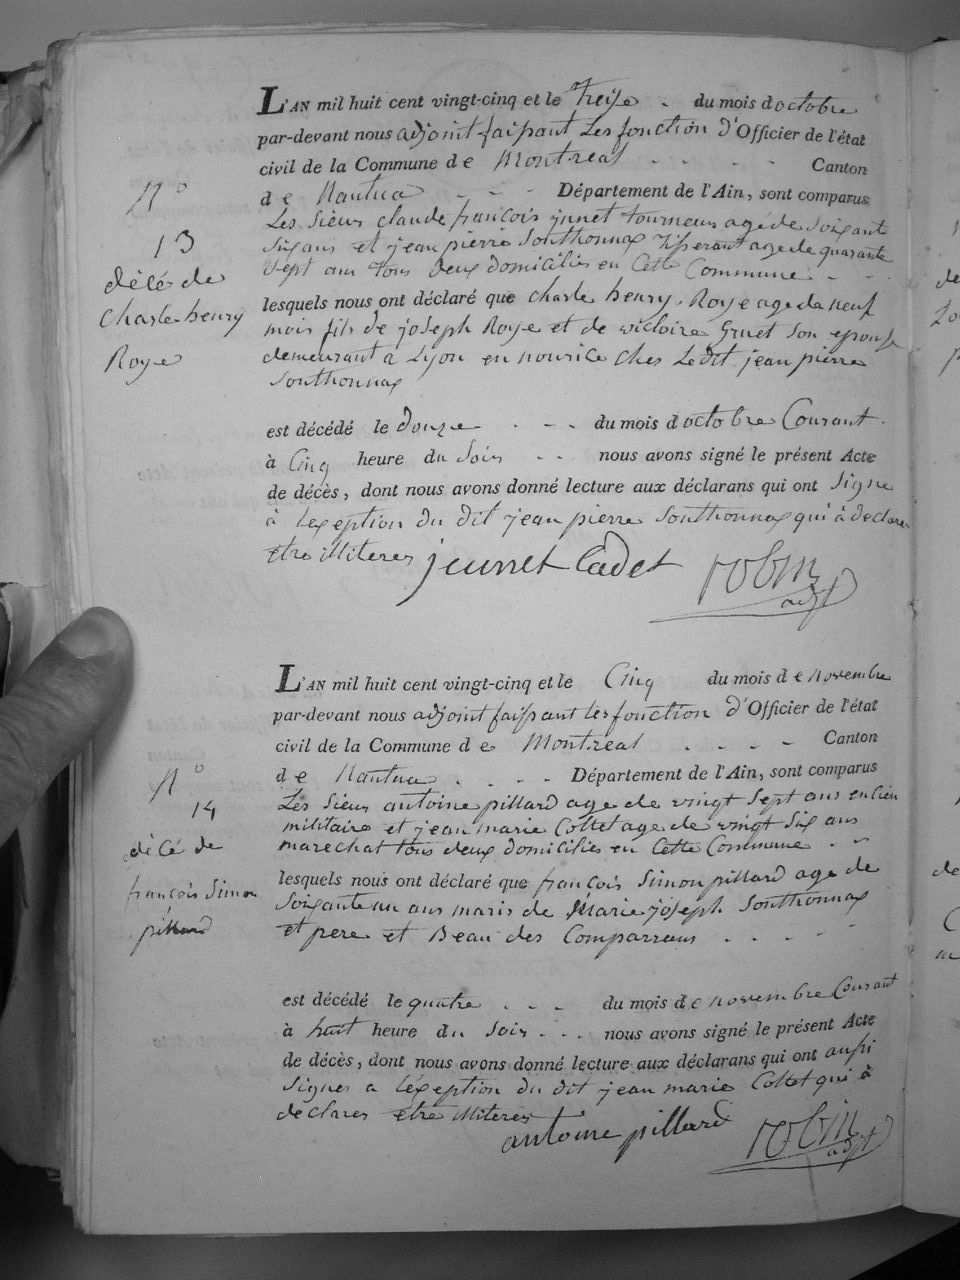 L'AN mil huit cent vingt-cinq et le Treise - du mois d octobre
par-devant nous adjoint faisant Les fonction d'Officier de l'état
civil de la Commune de Montreal - - - - Canton
de Nantua - - - Département de l'Ain, sont comparus
Les Sieurs claude françois jnnet tourneur agé de Soixante
Six ans et jean pierre Southonnax Tisserant age de quarante
Sept ans tous deux domicilies en Cette Commune - - -
lesquels nous ont déclaré que charle henry Roye age de neuf
mois fils de joseph Roye et de victoire Gruet Son epouse
demeurant a Lyon en nourice ches Ledit jean pierre
Southonnax
N° 13
décé de
charle henry
Roye
est décédé le douze - - - du mois d octobre Courant
à Cinq heure du Soir - - nous avons signé le présent Acte
de décès, dont nous avons donné lecture aux déclarans qui ont Signe
à lexeption du dit jean pierre Southonnax qui à declarer
etre illiteres jeunet Cadet robin
adjt
L'AN mil huit cent vingt-cinq et le Cinq du mois de novembre
par-devant nous adjoint faisant les fonction d'Officier de l'état
civil de la Commune de Montreal - - - - Canton
de Nantua - - - - Département de l'Ain, sont comparus
Les Sieur antoine pillard age de vingt Sept ans encien
militaire et jean marie Collet age de vingt Six ans
marechat tous deux domicilies en Cette Commune - -
lesquels nous ont déclaré que françois Simon pillard age de
Soixante un ans maris de Marie joseph Southonnax
et pere et Beau des Comparraus - - - - -
N° 14
décé de
françois Simon
pillard
est décédé le quatre - - - du mois de novembre Courant
à huit heure du Soir - - - nous avons signé le présent Acte
de décès, dont nous avons donné lecture aux déclarans qui ont aussi
Signes a léxeption du dit jean marie Collet qui à
declares etre illiteres
antoine pillard robin
adjt